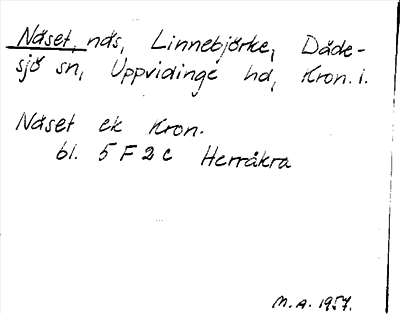 Näset, näs, Linnebjörke, Däde-
sjö sn, Uppvidinge hd, Kron. l.
Näset ek Kron.
bl. 5 F 2 c Herråkra
M.A. 1957.